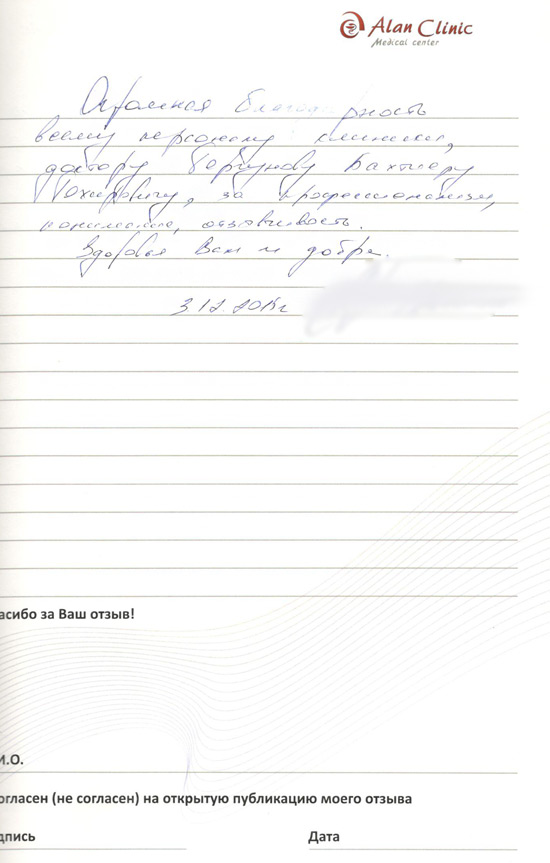 Alan Clinic
Medical center
Огромная благодарность
всему персоналу клиники,
доктору Бахтиеру
за профессионализм,
понимание, отзывчивость.
Здоровья Вам и добра.
асибо за Ваш отзыв!
И.О.
огласен (не согласен) на открытую публикацию моего отзыва
дпись Дата